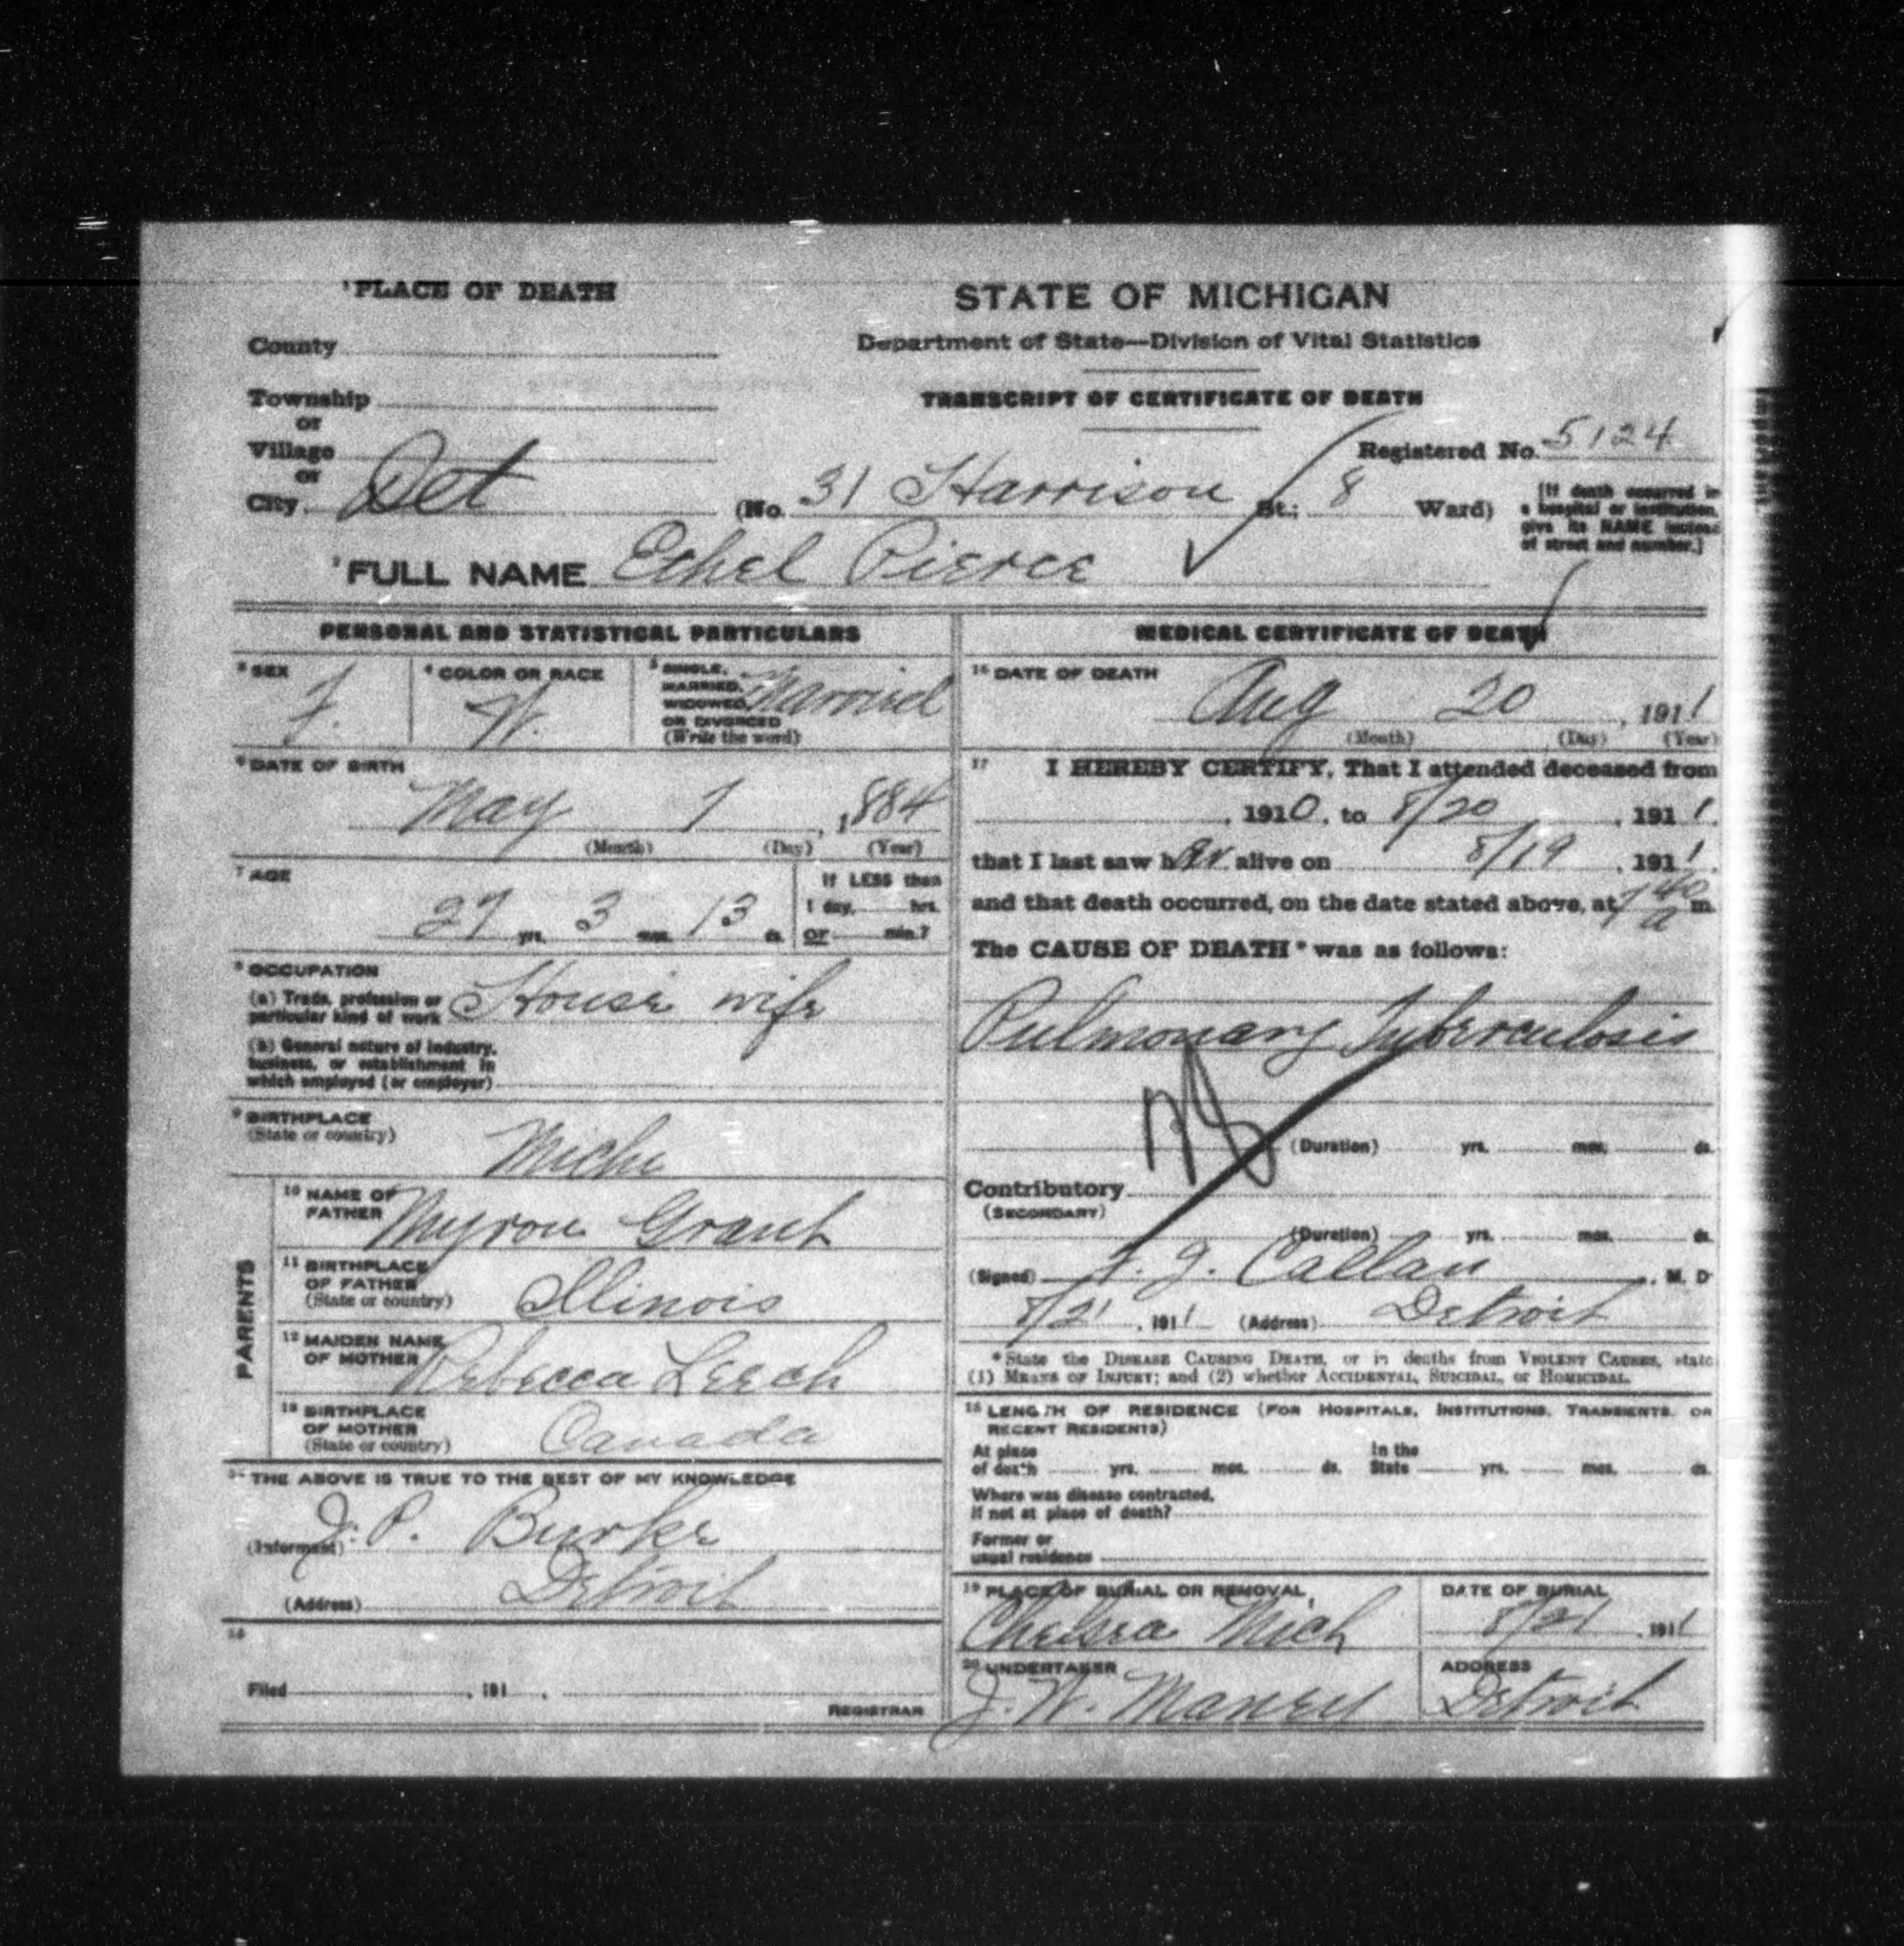 ¹PLACE OF DEATH
County
Township
or
Village
or
City Det
STATE OF MICHIGAN
Department of State—Division of Vital Statistics
TRANSCRIPT OF CERTIFICATE OF DEATH
Registered No. 5124
(No. 31 Harrison St.; 8 Ward)
[If death occurred in
a hospital or institution,
give its NAME instead
of street and number.]
²FULL NAME Ethel Pierce
PERSONAL AND STATISTICAL PARTICULARS
³ SEX
F.
⁴ COLOR OR RACE
W.
⁵ SINGLE,
MARRIED,
WIDOWED,
OR DIVORCED
(Write the word)
Married
⁶ DATE OF BIRTH
May 7, 1884
(Month) (Day) (Year)
⁷ AGE
27 yrs. 3 mos. 13 ds.
If LESS than
1 day, hrs.
or min.?
⁸ OCCUPATION
(a) Trade, profession or
particular kind of work House wife
(b) General nature of industry,
business, or establishment in
which employed (or employer)
⁹ BIRTHPLACE
(State or country)
Mich
PARENTS
¹⁰ NAME OF
FATHER Myron Grant
¹¹ BIRTHPLACE
OF FATHER
(State or country) Illinois
¹² MAIDEN NAME
OF MOTHER Rebecca Leech
¹³ BIRTHPLACE
OF MOTHER
(State or country) Canada
¹⁴ THE ABOVE IS TRUE TO THE BEST OF MY KNOWLEDGE
(Informant) J. P. Burke
(Address) Detroit
¹⁵
Filed , 191 ,
REGISTRAR
MEDICAL CERTIFICATE OF DEATH
¹⁶ DATE OF DEATH
Aug 20, 1911
(Month) (Day) (Year)
¹⁷ I HEREBY CERTIFY, That I attended deceased from
, 1910, to 8/20, 1911,
that I last saw her alive on 8/19, 1911,
and that death occurred, on the date stated above, at 7 40 a m.
The CAUSE OF DEATH * was as follows:
Pulmonary Tuberculosis
(Duration) yrs. mos. ds.
Contributory
(SECONDARY)
(Duration) yrs. mos. ds.
(Signed) F. J. Callan, M. D
8/21, 1911 (Address) Detroit
* State the DISEASE CAUSING DEATH, or in deaths from VIOLENT CAUSES, state
(1) MEANS OF INJURY; and (2) whether ACCIDENTAL, SUICIDAL, or HOMICIDAL.
¹⁸ LENGTH OF RESIDENCE (FOR HOSPITALS, INSTITUTIONS, TRANSIENTS, OR
RECENT RESIDENTS)
At place
of death yrs. mos. ds.
In the
State yrs. mos. ds.
Where was disease contracted,
if not at place of death?
Former or
usual residence
¹⁹ PLACE OF BURIAL OR REMOVAL
Chelsea Mich
DATE OF BURIAL
8/21, 1911
²⁰ UNDERTAKER
J. W. Maney
ADDRESS
Detroit